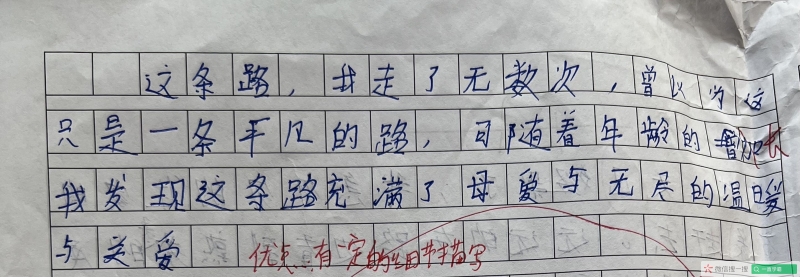 这条路，我走了无数次，曾以为这
只是一条平凡的路，可随着年龄的增长
我发现这条路充满了母爱与无尽的温暖
与关爱
优点：有一定的细节描写
微信搜一搜